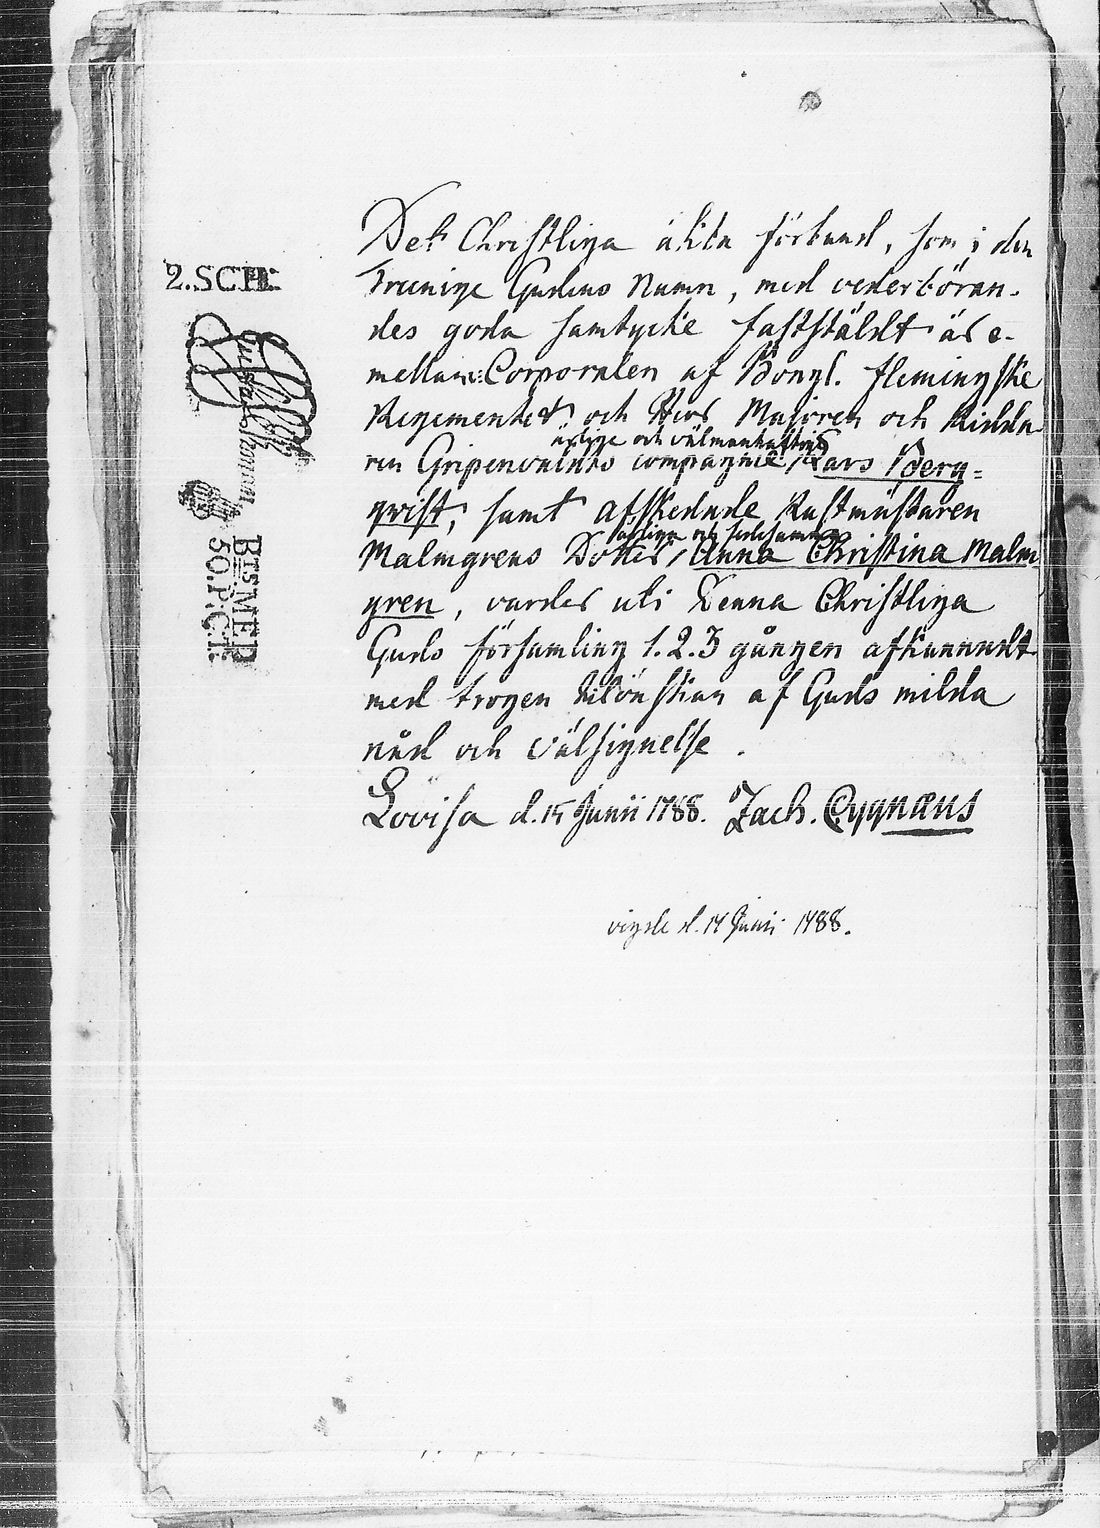 2.SCH:
BTS.MED
50.P:CT:
Det Christliga äkta förbund, som i den
Treenige Gudens Namn, med vederböran-
des goda samtycke fastställdt är e-
mellan: Corporalen af Kongl. Flemingske
Regementet och Herr Majoren och Ridda-
ren Gripenvaldts compagnie / Lars Berg=
ärlige och välmanhaftige
qvist, samt afskedade Rustmästaren
Malmgrens Dotter / Anna Christina Malm-
ärliga och sedesamma
gren, varder uti Denna Christliga
Guds församling 1. 2. 3 gången afkunnadt
med trogen tillönskan af Guds milda
nåd och välsignelse.
Lovisa d. 15 Junii 1788. Zach. Cygnæus
vigde d. 17 Junii 1788.